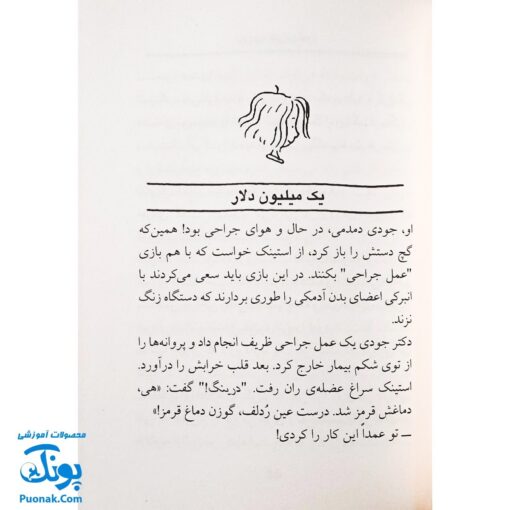 یک میلیون دلار
او، جودی دمدمی، در حال و هوای جراحی بود! همین‌که
گچ دستش را باز کرد، از استینک خواست که با هم بازی
"عمل جراحی" بکنند. در این بازی باید سعی می‌کردند با
انبرکی اعضای بدن آدمکی را طوری بردارند که دستگاه زنگ
نزند.
دکتر جودی یک عمل جراحی ظریف انجام داد و پروانه‌ها را
از توی شکم بیمار خارج کرد. بعد قلب خرابش را درآورد.
استینک سراغ عضله‌ی ران رفت. "درینگ!" گفت: «هی،
دماغش قرمز شد. درست عین رُدلف، گوزن دماغ قرمز!»
ــ تو عمداً این کار را کردی!
محصولات آموزشی
پونک
Puonak.Com